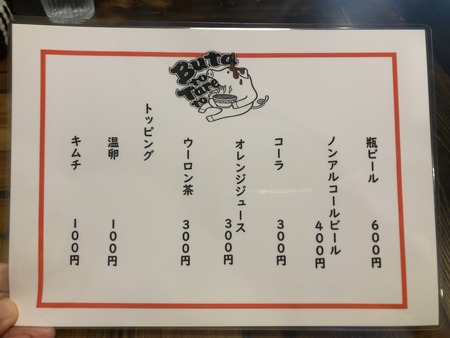 Buta
to
Tare
to
瓶ビール 600円
ノンアルコールビール 400円
コーラ 300円
オレンジジュース 300円
ウーロン茶 300円
トッピング
温卵 100円
キムチ 100円